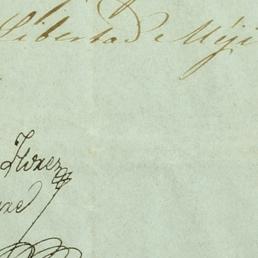 Libertad Méji
Florez